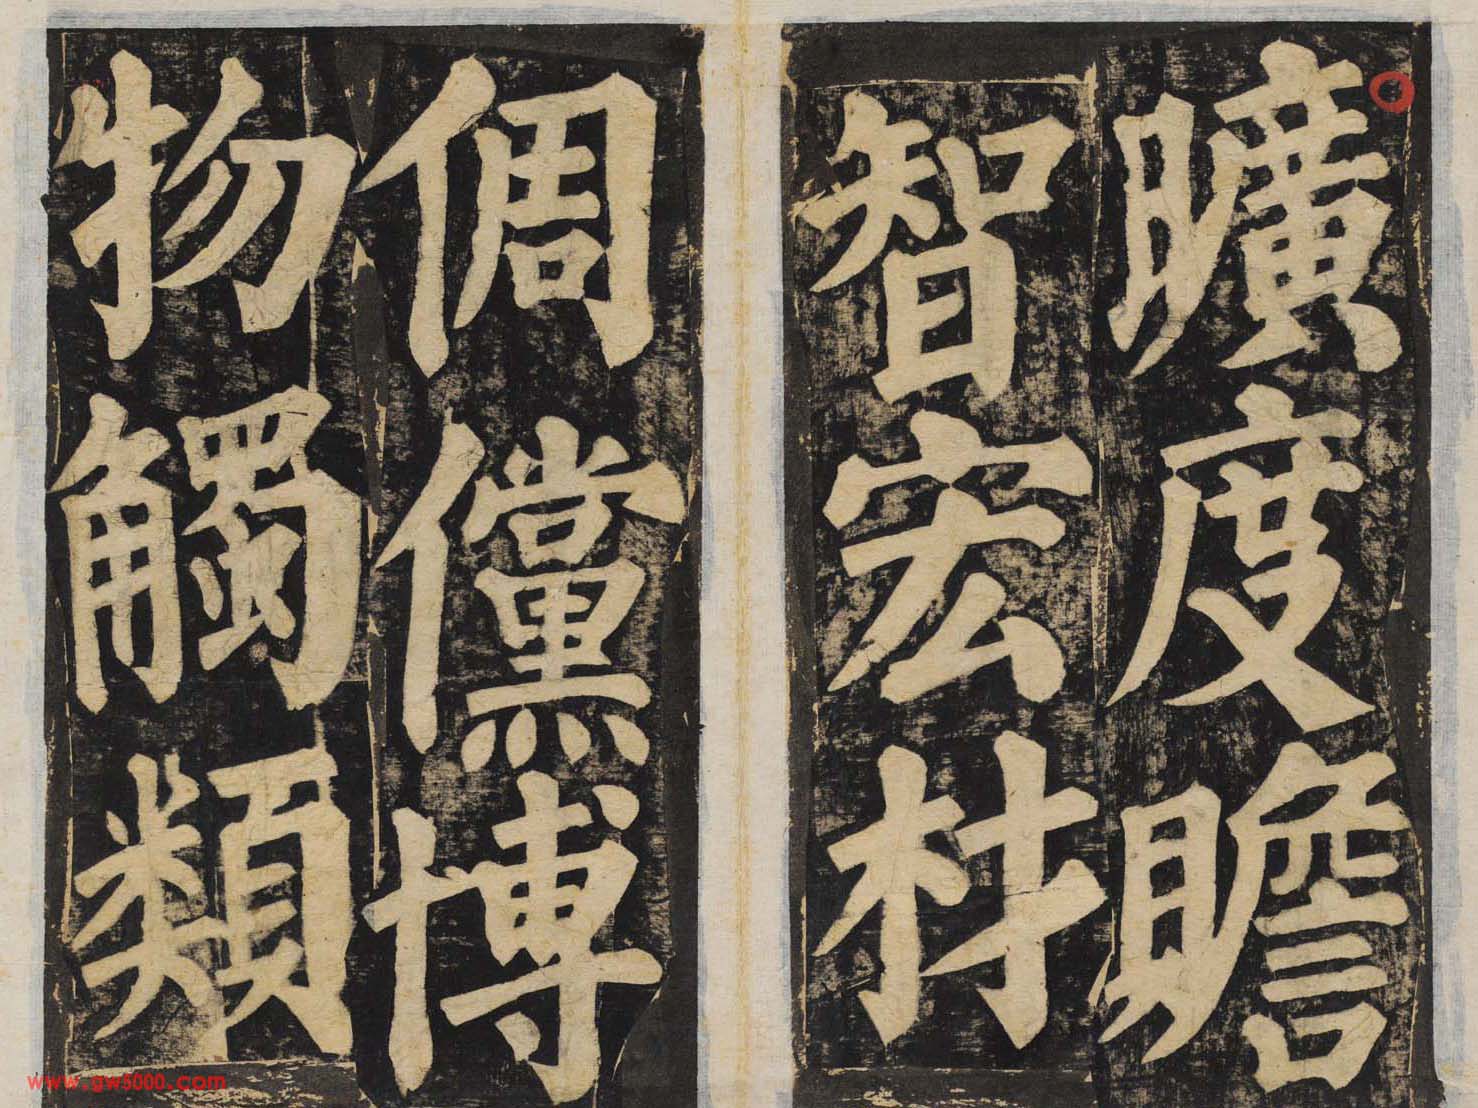 曠度瞻
智宏材
倜儻博
物觸類
www.gw5000.com